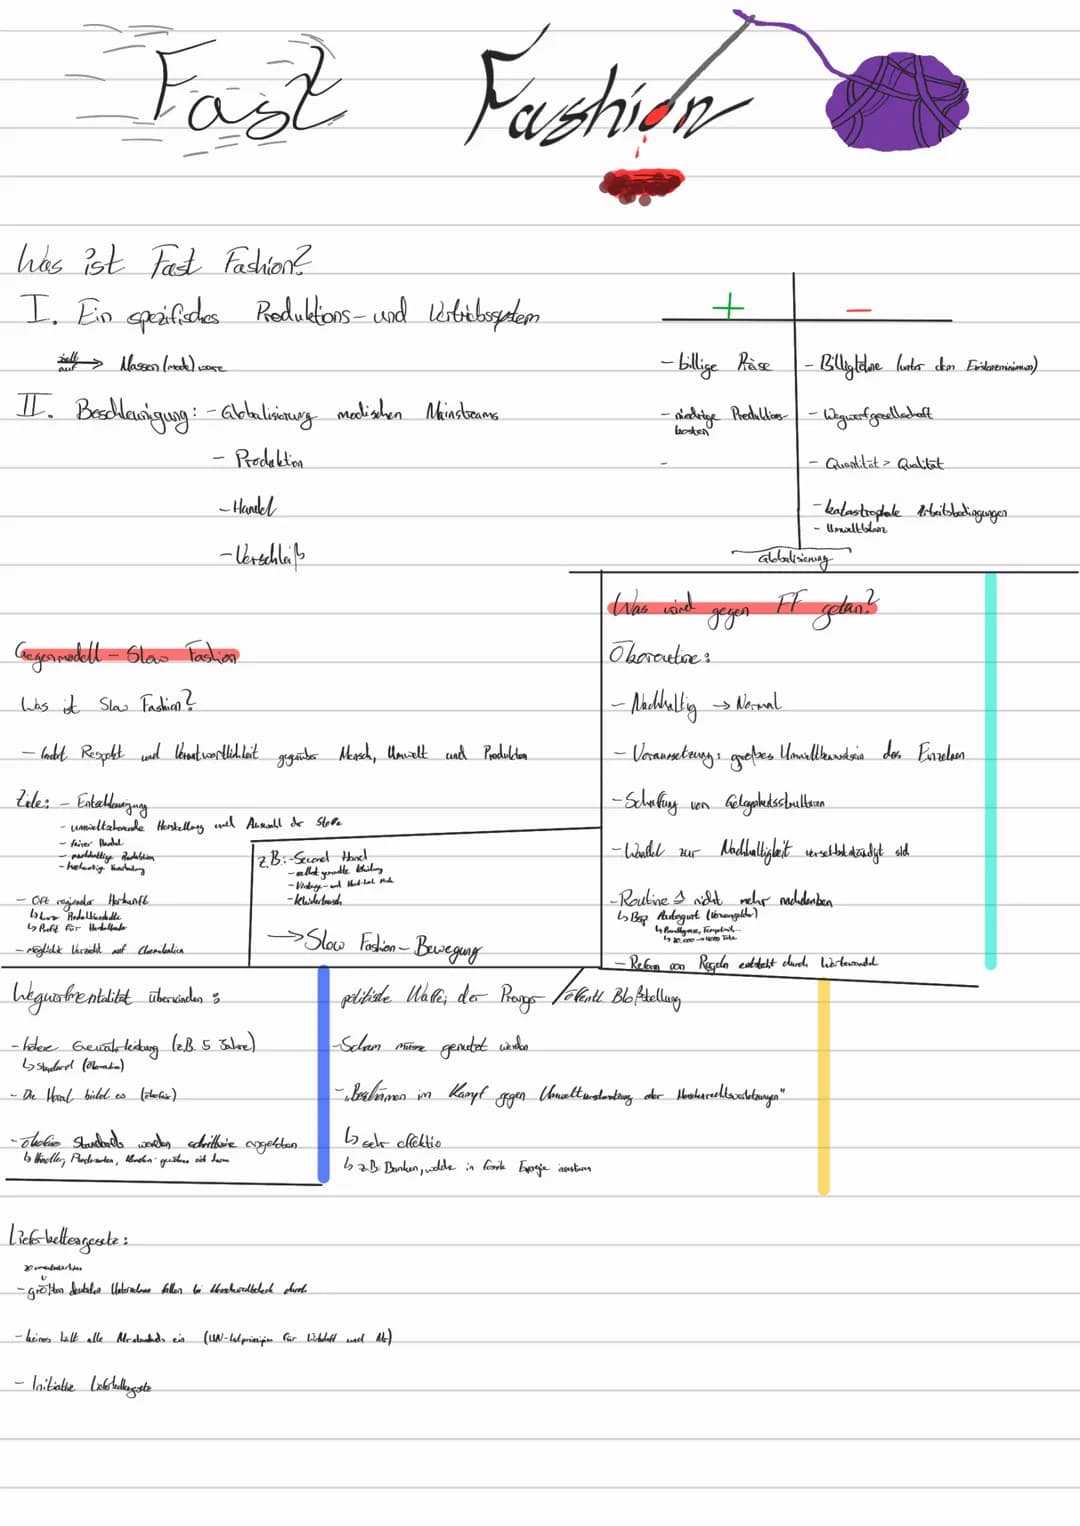 Fast Fashion
Was ist Fast Fashion?
I. Ein spezifisches Produktions- und Vertriebssystem
zielt auf → Massen(mode)ware
II. Beschleunigung: - Globalisierung modischen Mainstreams
- Produktion
- Handel
- Verschleiß
+ −
- billige Preise
- niedrige Produktionskosten
-
- Billiglöhne (unter dem Existenzminimum)
- Wegwerfgesellschaft
- Quantität > Qualität
- katastrophale Arbeitsbedingungen
- Umweltbilanz
Globalisierung
Gegenmodell - Slow Fashion
Was ist Slow Fashion?
- Respekt und Verantwortlichkeit gegenüber Mensch, Umwelt und Produkten
Ziele: - Entschleunigung
- umweltschonende Herstellung und Auswahl der Stoffe
- fairer Handel
- nachhaltige Produktion
- hochwertige Verarbeitung
- Oft regionaler Herkunft
↳
↳ Profit für
- möglichst Verzicht auf Chemikalien
z.B: - Second Hand
- selbst genähte Kleidung
- Vintage- und
- Kleidertausch
→ Slow Fashion - Bewegung
Was wird gegen FF getan?
Ökoroutine:
- Nachhaltig → Normal
- Voraussetzung: großes Umweltbewusstsein des Einzelnen
- Schaffung von Gelegenheitsstrukturen
- Wandel zur Nachhaltigkeit verselbstständigt sich
- Routine nicht mehr nachdenken
↳ Bsp Autogurt
↳ Bußgeld, Tempolimit
↳ 20.000 → 4000 Tote
- Reform von Regeln entsteht durch Wertewandel
Wegwerfmentalität überwinden:
- höhere Gewährleistung (z.B. 5 Jahre)
↳ Standard
- Der Handel bildet es
- Standards werden schrittweise angehoben
↳ Händler, Produzenten, Kunden gewöhnen sich daran
politische Waffe; der Pranger / öffentl. Bloßstellung
- Scham müsse genutzt werden
- „Beschämen im Kampf gegen Umweltverschmutzung oder Menschenrechtsverletzungen"
↳ sehr effektiv
↳ z.B. Banken, welche in fossile Energie investieren
Lieferkettengesetz:
20
- größten deutschen Unternehmen fallen bei Menschenrechtscheck durch
- keines hält alle ein (UN-Leitprinzipien für Wirtschaft und MR)
- Initiative Lieferkettengesetz